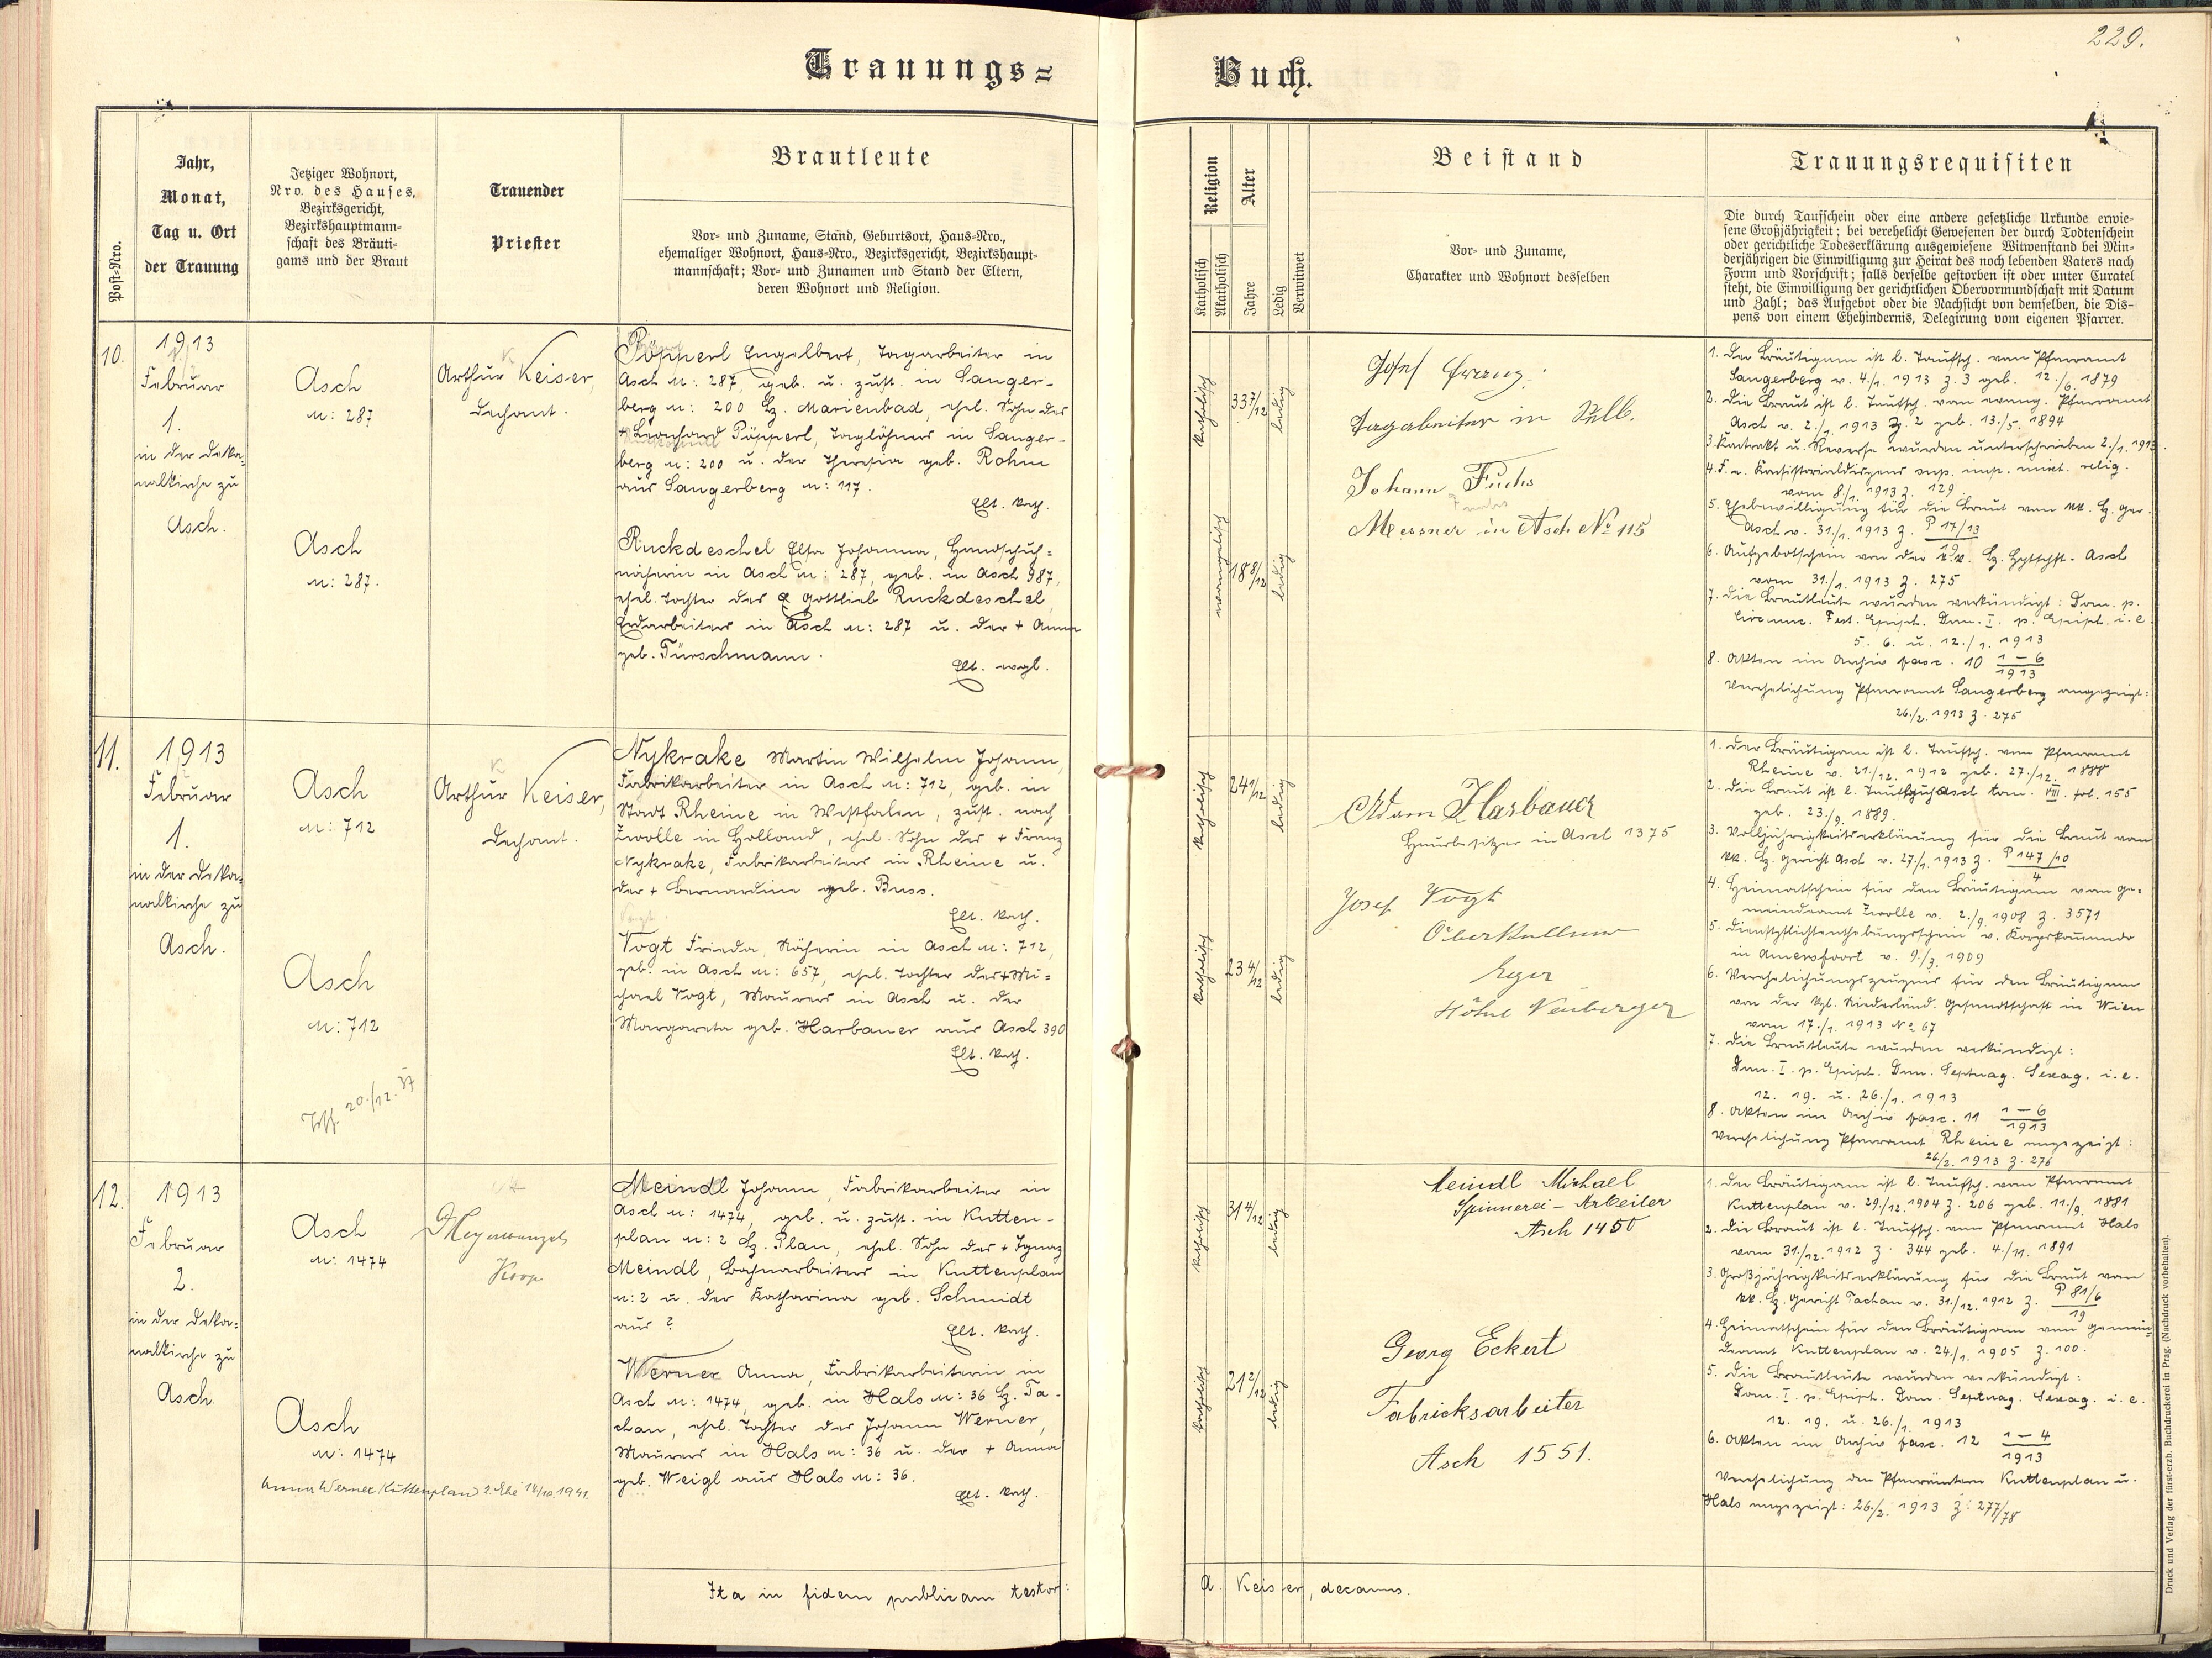 229.
Trauungs=
Buch.
Post-Nro.
Jahr,
Monat,
Tag u. Ort
der Trauung
Jetziger Wohnort,
Nro. des Hauses,
Bezirksgericht,
Bezirkshauptmann-
schaft des Bräuti-
gams und der Braut
Trauender
Priester
Brautleute
Vor- und Zuname, Stand, Geburtsort, Haus-Nro.,
ehemaliger Wohnort, Haus-Nro., Bezirksgericht, Bezirkshaupt-
mannschaft; Vor- und Zunamen und Stand der Eltern,
deren Wohnort und Religion.
Religion
Katholisch
Akatholisch
Alter
Jahre
Ledig
Verwitwet
Beistand
Vor- und Zuname,
Charakter und Wohnort desselben
Trauungsrequisiten
Die durch Taufschein oder eine andere gesetzliche Urkunde erwie-
sene Großjährigkeit; bei verehelicht Gewesenen der durch Todtenschein
oder gerichtliche Todeserklärung ausgewiesene Witwenstand bei Min-
derjährigen die Einwilligung zur Heirat des noch lebenden Vaters nach
Form und Vorschrift; falls derselbe gestorben ist oder unter Curatel
steht, die Einwilligung der gerichtlichen Obervormundschaft mit Datum
und Zahl; das Aufgebot oder die Nachsicht von demselben, die Dis-
pens von einem Ehehindernis, Delegirung vom eigenen Pfarrer.
10.
1913
Februar
1.
in der Deka-
nalkirche zu
Asch.
Asch
n: 287
Asch
n: 287.
Arthur Keiser,
Dechant.
Pöpperl Engelbert, Tagarbeiter in
Asch n: 287, geb. u. zust. in Sanger-
berg n: 200 Bz. Marienbad, ehel. Sohn des
+ Leonhard Pöpperl, Taglöhners in Sanger-
berg n: 200 u. der Theresia geb. Rohm
aus Sangerberg n: 117.
Elt. kath.
Ruckdeschel Elsa Johanna, Handschuh-
näherin in Asch n: 287, geb. in Asch 987,
ehel. Tochter des Gottlieb Ruckdeschel,
Erdarbeiters in Asch n: 287 u. der + Anna
geb. Türschmann.
Elt. evgl.
katholisch
33 7/12
ledig
evangelisch
18 8/12
ledig
Josef
Tagarbeiter in Selb.
Johann Fuchs
Messner in Asch No 115
1. Der Bräutigam ist l. Taufsch. vom Pfarramt
Sangerberg v. 4./1. 1913 Z. 3 geb. 12./6. 1879
2. Die Braut ist l. Taufsch. vom evang. Pfarramt
Asch v. 2./1. 1913 Z. 2 geb. 13./5. 1894
3. Kontrakt u. Reverse wurden unterschrieben 2./1. 1913.
4. F. e. Konsistorialdispens sup. imp. mixt. relig.
vom 8./1. 1913 Z. 129
5. Ehebewilligung für die Braut vom kk. Bz. Ger.
Asch v. 31./1. 1913 Z. P 17/13
19
6. Aufgebotschein von der k.k. Bz. Hptschft. Asch
vom 31./1. 1913 Z. 275
7. Die Brautleute wurden verkündigt: Dom. p.
Circumc. Fest. Epiph. Dom. I. p. Epiph. i. e.
5. 6. u. 12./1. 1913
8. Akten im Archiv fasc. 10 1-6
1913
Verehelichung Pfarramt Sangerberg angezeigt:
26./2. 1913 Z. 275
11.
1913
Februar
1.
in der Deka-
nalkirche zu
Asch.
Asch
n: 712
Asch
n: 712
20./12. 37
Arthur Keiser,
Dechant.
Nykrake Martin Wilhelm Johann,
Fabrikarbeiter in Asch n: 712, geb. in
Stadt Rheine in Westfalen, zust. nach
Zwolle in Holland, ehel. Sohn des + Franz
Nykrake, Fabrikarbeiters in Rheine u.
der + Bernardine geb. Buss.
Elt. kath.
Vogt Frieda, Näherin in Asch n: 712,
geb. in Asch n: 657, ehel. Tochter des + Mi-
chael Vogt, Maurers in Asch u. der
Margareta geb. Harbauer aus Asch 390
Elt. kath.
katholisch
24 1/12
ledig
katholisch
23 4/12
ledig
Adam Hasbauer
Hausbesitzer in Asch 1375
Josef Vogt
Oberkellner
Eger
Hôtel Neuberger
1. Der Bräutigam ist l. Taufsch. vom Pfarramt
Rheine v. 21./12. 1912 geb. 27./12. 1888
2. Die Braut ist l. Taufbuch Asch tom. VIII. fol. 155
geb. 23./9. 1889.
3. Volljährigkeitserklärung für die Braut vom
kk. Bz. Gericht Asch v. 27./1. 1913 Z. P 147/10
4
4. Heimatschein für den Bräutigam vom Ge-
meindeamt Zwolle v. 2./9. 1908 Z. 3571
5. Dienstpflichtenthebungsschein v. Korpskommando
in Amersfoort v. 9./3. 1909
6. Verehelichungszeugnis für den Bräutigam
von der kgl. Niederländ. Gesandtschaft in Wien
vom 17./1. 1913 No 67
7. Die Brautleute wurden verkündigt:
Dom. I. p. Epiph. Dom. Septuag. Sexag. i. e.
12. 19. u. 26./1. 1913
8. Akten im Archiv fasc. 11 1-6
1913
Verehelichung Pfarramt Rheine angezeigt:
26./2. 1913 Z. 276
12.
1913
Februar
2.
in der Deka-
nalkirche zu
Asch
Asch
n: 1474
Asch
n: 1474
Anna Werner Kuttenplan 2. Ehe 18/10. 1941.
Koop
Meindl Johann, Fabrikarbeiter in
Asch n: 1474, geb. u. zust. in Kutten-
plan n: 2 Bz. Plan, ehel. Sohn des + Ignaz
Meindl, Bahnarbeiters in Kuttenplan
n: 2 u. der Katharina geb. Schmidt
aus ?
Elt. kath.
Werner Anna, Fabrikarbeiterin in
Asch n: 1474, geb. in Hals n: 36 Bz. Ta-
chau, ehel. Tochter des Johann Werner,
Maurers in Hals n: 36 u. der + Anna
geb. Weigl aus Hals n: 36.
Elt. kath.
katholisch
31 4/12
ledig
katholisch
21 2/12
ledig
Meindl Michael
Spinnerei-Arbeiter
Asch 1450
Georg Eckert
Fabricksarbeiter
Asch 1551.
1. Der Bräutigam ist l. Taufsch. vom Pfarramt
Kuttenplan v. 29./12. 1904 Z. 206 geb. 11./9. 1881
2. Die Braut ist l. Taufsch. vom Pfarramt Hals
vom 31./12. 1912 Z. 344 geb. 4./11. 1891
3. Großjährigkeitserklärung für die Braut vom
kk. Bz. Gericht Tachau v. 31./12. 1912 Z. P 81/6
19
4. Heimatschein für den Bräutigam vom Gemein-
deamt Kuttenplan v. 24./1. 1905 Z. 100.
5. Die Brautleute wurden verkündigt:
Dom. I. p. Epiph. Dom. Septuag. Sexag. i. e.
12. 19. u. 26./1. 1913
6. Akten im Archiv fasc. 12 1-4
1913
Verehelichung den Pfarrämtern Kuttenplan u.
Hals angezeigt: 26./2. 1913 Z: 277/78
Ita in fidem publicam testor:
A. Keiser, decanus.
Druck und Verlag der fürst-erzb. Buchdruckerei in Prag. (Nachdruck vorbehalten).